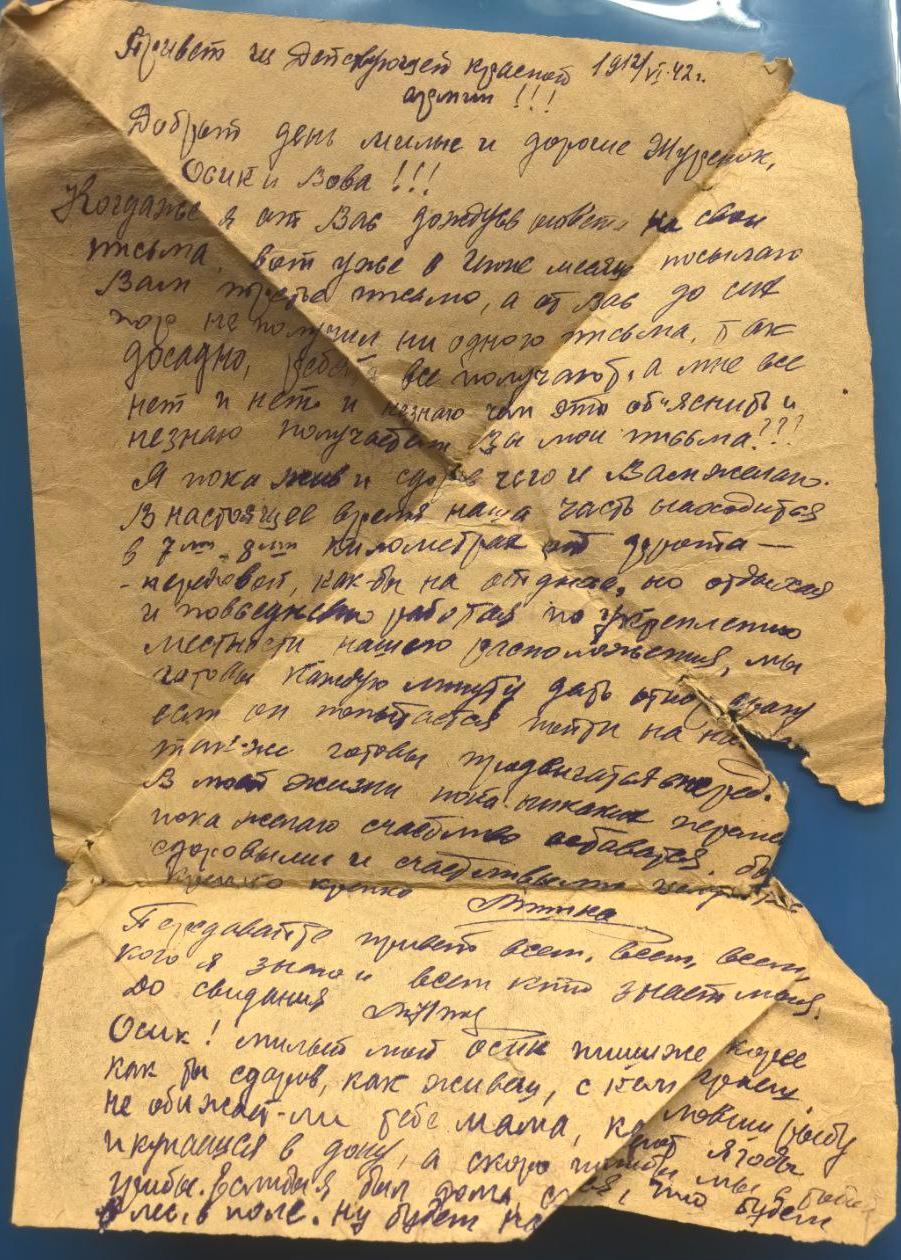 Привет из Действующей красной 19 12/VI-42 г.
армии !!!
Добрый день милые и дорогие Журенок,
Осик и Вова !!!
Когда же я от Вас дождусь ответа на свои
письма, вот уже в Июне месяце посылаю
Вам третье письмо, а от Вас до сих
пор не получил ни одного письма. Так
досадно, ребята все получают, а мне все
нет и нет и незнаю чем это объяснить и
незнаю получаете ли Вы мои письма???
Я пока жив и здоров чего и Вам желаю.
В настоящее время наша часть находится
в 7ми-8ми километрах от фронта —
- передовой, как-бы на отдыхе, но отдыхая
и повседневно работая по укреплению
местности нашего расположения, мы
готовы каждую минуту дать отпор врагу
если он попытается пойти на на
так-же готовы продвигаться вперед.
В моей жизни пока никаких переме
пока желаю счастливо оставаться. бы
здоровыми и счастливыми
крепко крепко Митька
Передавайте привет всем, всем, всем,
кого я знаю и всем кто знает меня.
До свидания
Осик! милый мой Осик пиши же скорее
как ты здоров, как живешь, с кем играешь
не обижает-ли тебя мама, ловишь рыбу
и купаешся в дону, а скоро ягоды
грибы. был дома, что будем
в лес, в поле. Ну будет